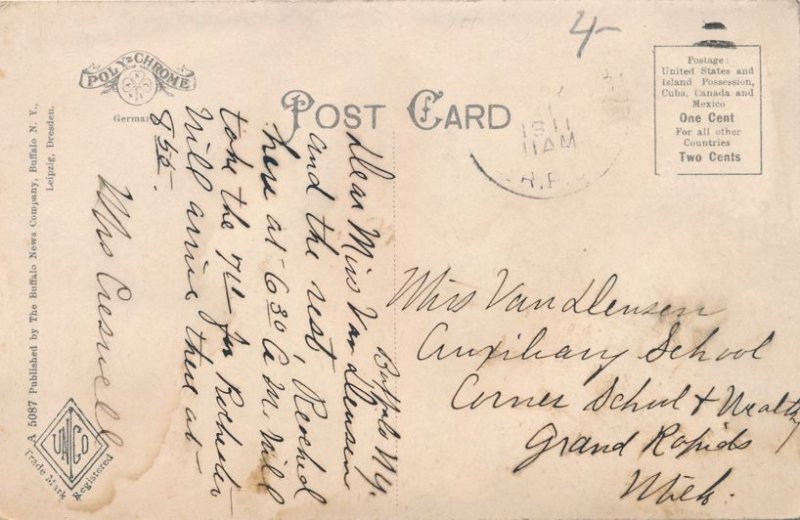 4-
POLY-CHROME
German
POST CARD
1911
11 AM
R.P.
Postage:
United States and
Island Possession,
Cuba, Canada and
Mexico
One Cent
For all other
Countries
Two Cents
A 5087 Published by The Buffalo News Company, Buffalo N. Y.,
Leipzig, Dresden.
UNICO
Trade Mark Registered
Buffalo N.Y.
Dear Miss Van Deusen
and the rest, Reached
here at 6 30 A.M. Will
take the 7 for Rochester
Will arrive there at
8 55.
Mrs Creswell
Miss Van Deusen
Auxiliary School
Corner School & Wealthy
Grand Rapids
Mich.